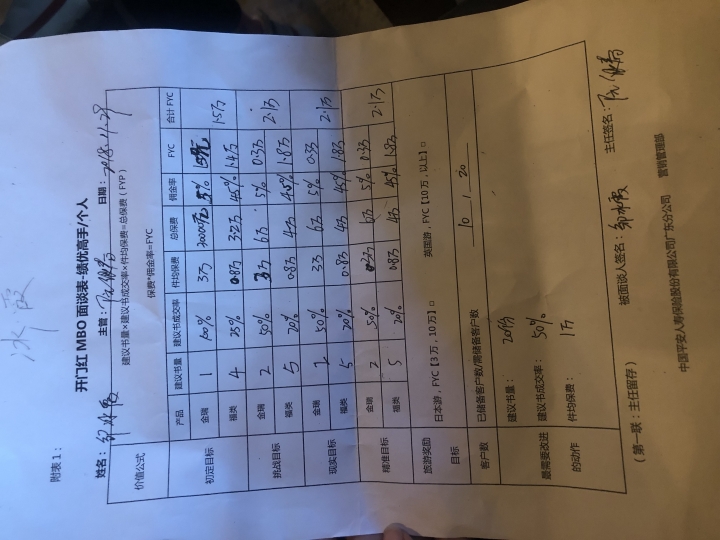 冰霞
附表1：
开门红 MBO 面谈表-绩优高手/个人
姓名：邹冰霞 主管： 日期：2018.11.29
价值公式 建议书量×建议书成交率×件均保费=总保费（FYP）
保费*佣金率=FYC
产品 建议书量 建议书成交率 件均保费 总保费 佣金率 FYC 合计 FYC
初定目标 金瑞 1 100% 3万 30000元 5% 1.5万
福类 4 25% 0.8万 3.2万 45% 1.4万
挑战目标 金瑞 2 50% 3万 6万 5% 0.3万 2.1万
福类 5 20% 0.8万 4万 45% 1.8万
现实目标 金瑞 2 50% 3万 6万 5% 0.3万 2.1万
福类 5 20% 0.8万 4万 45% 1.8万
精准目标 金瑞 2 50% 3万 6万 5% 0.3万 2.1万
福类 5 20% 0.8万 4万 45% 1.8万
旅游奖励目标 日本游，FYC【3万，10万】□ 英国游，FYC【10万，以上】□
客户数 已储备客户数/需储备客户数 10 / 20
最需要改进的动作
建议书量： 20份
建议书成交率： 50%
件均保费： 1万
（第一联：主任留存） 被面谈人签名：邹冰霞 主任签名：
中国平安人寿保险股份有限公司广东分公司 营销管理部